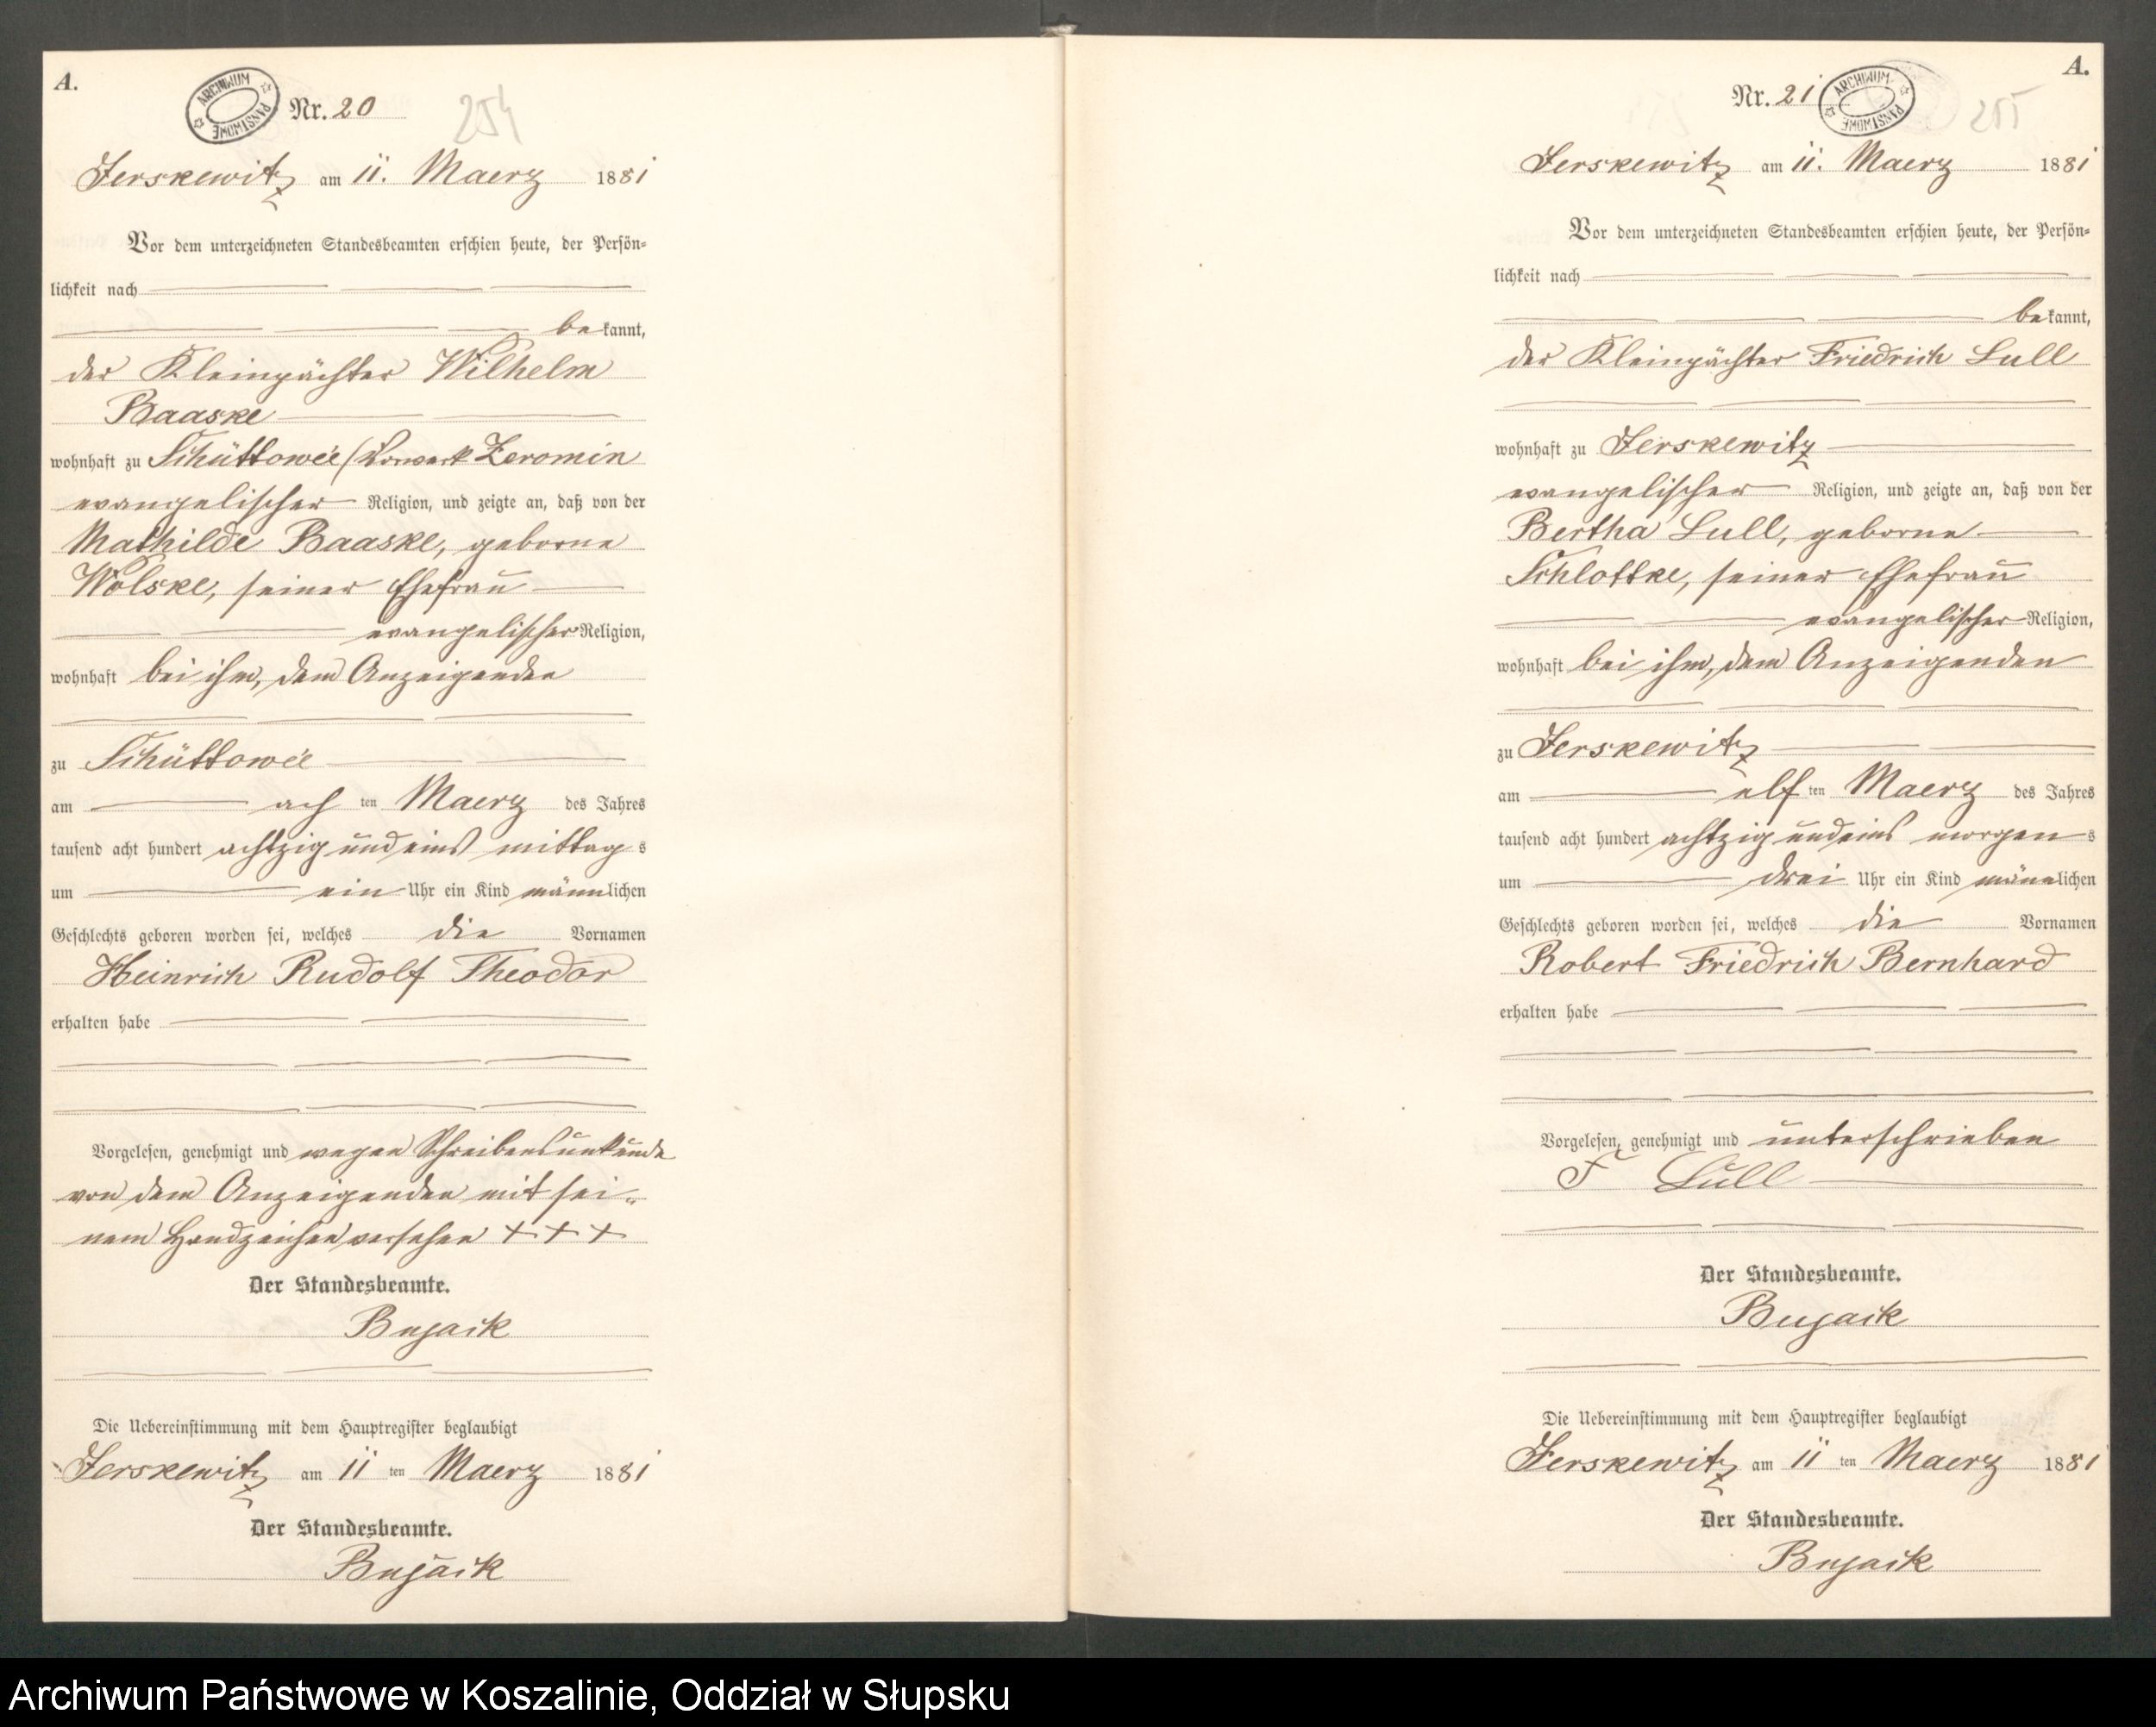 A.
ARCHIWUM PAŃSTWOWE
Nr. 20
254
Jerskewitz am 11. Maerz 1881
Vor dem unterzeichneten Standesbeamten erschien heute, der Persön-
lichkeit nach
bekannt,
der Kleinpächter Wilhelm
Baaske
wohnhaft zu Schüttower (Vorwerk Zeromin
evangelischer Religion, und zeigte an, daß von der
Mathilde Baaske, geborne
Wolske, seiner Ehefrau
evangelischer Religion,
wohnhaft bei ihm, dem Anzeigenden
zu
am ach ten Maerz des Jahres
tausend acht hundert achtzig und eins mittags
um ein Uhr ein Kind männlichen
Geschlechts geboren worden sei, welches die Vornamen
Heinrich Rudolf Theodor
erhalten habe
Vorgelesen, genehmigt und wegen Schreibensunkunde
von dem Anzeigenden mit sei-
nem Handzeichen versehen + + +
Der Standesbeamte.
Bujack
Die Uebereinstimmung mit dem Hauptregister beglaubigt
Jerskewitz am 11 ten Maerz 1881
Der Standesbeamte.
Bujack
A.
Nr. 21
ARCHIWUM PAŃSTWOWE
255
Jerskewitz am 11. Maerz 1881
Vor dem unterzeichneten Standesbeamten erschien heute, der Persön-
lichkeit nach
bekannt,
der Kleinpächter Friedrich Lull
wohnhaft zu Jerskewitz
evangelischer Religion, und zeigte an, daß von der
Bertha Lull, geborne
Schlottke, seiner Ehefrau
evangelischer Religion,
wohnhaft bei ihm, dem Anzeigenden
zu Jerskewitz
am elf ten Maerz des Jahres
tausend acht hundert achtzig und eins morgens
um drei Uhr ein Kind männlichen
Geschlechts geboren worden sei, welches die Vornamen
Robert Friedrich Bernhard
erhalten habe
Vorgelesen, genehmigt und unterschrieben
F Lull
Der Standesbeamte.
Bujack
Die Uebereinstimmung mit dem Hauptregister beglaubigt
Jerskewitz am 11 ten Maerz 1881
Der Standesbeamte.
Bujack
Archiwum Państwowe w Koszalinie, Oddział w Słupsku